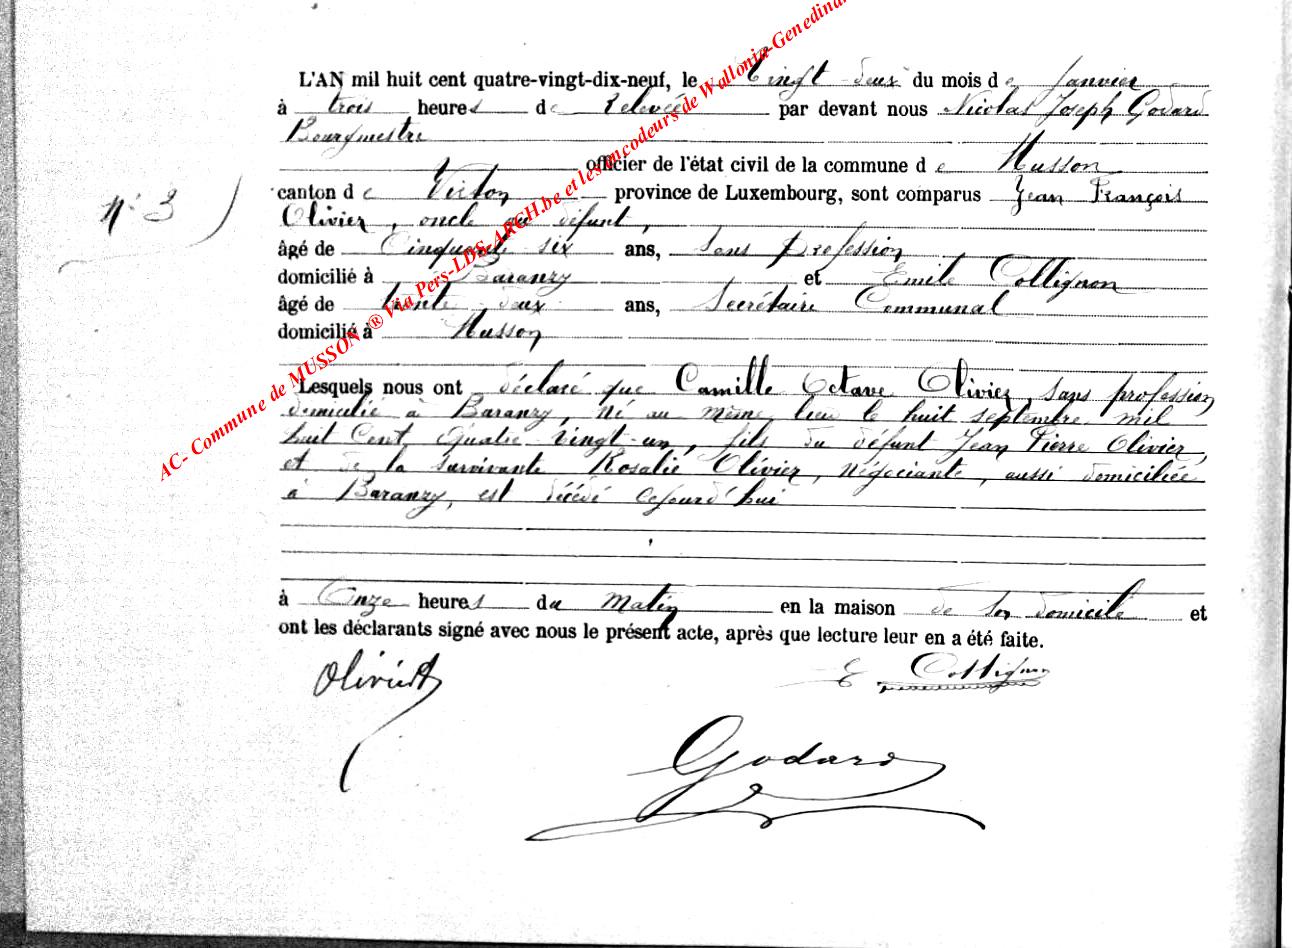 L'AN mil huit cent quatre-vingt-dix-neuf, le Vingt deux du mois de Janvier
à trois heures de Relevée par devant nous Nicolas Joseph Godard
Bourgmestre
officier de l'état civil de la commune de Musson
N° 3
canton de Virton province de Luxembourg, sont comparus Jean François
Olivier, oncle du défunt,
âgé de Cinquante six ans, Sans profession
domicilié à Baranzy et Emile Collignon
âgé de trente deux ans, Secrétaire Communal
domicilié à Musson
Lesquels nous ont déclaré que Camille Octave Olivier, sans profession
domicilié à Baranzy, né au même lieu le huit septembre mil
huit Cent Quatre-Vingt-un, fils du défunt Jean Pierre Olivier,
et de la survivante Rosalie Olivier, négociante, aussi domiciliée
à Baranzy, est décédé cejourd'hui
à Onze heures du Matin en la maison de son domicile et
ont les déclarants signé avec nous le présent acte, après que lecture leur en a été faite.
Olivier
E Collignon
Godard
AC- Commune de MUSSON ® Via Pers-LDS-ARCH.be et les encodeurs de Wallonia-Genedinan